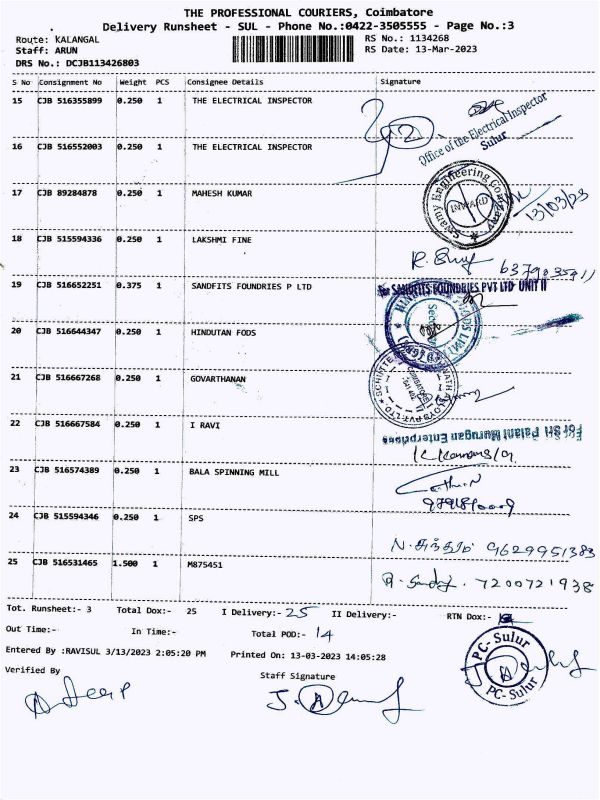 THE PROFESSIONAL COURIERS, Coimbatore
Delivery Runsheet - SUL - Phone No.:0422-3505555 - Page No.:3
Route: KALANGAL RS No.: 1134268
Staff: ARUN RS Date: 13-Mar-2023
DRS No.: DCJB113426803
S No Consignment No Weight PCS Consignee Details Signature
15 CJB 516355899 0.250 1 THE ELECTRICAL INSPECTOR
Office of the Electrical Inspector
Sulur
16 CJB 516552003 0.250 1 THE ELECTRICAL INSPECTOR
17 CJB 89284878 0.250 1 MAHESH KUMAR
Swamy Engineering Company
INWARD
13/03/23
18 CJB 515594336 0.250 1 LAKSHMI FINE
19 CJB 516652251 0.375 1 SANDFITS FOUNDRIES P LTD
For SANDFITS FOUNDRIES PVT LTD UNIT II
20 CJB 516644347 0.250 1 HINDUTAN FODS
21 CJB 516667268 0.250 1 GOVARTHANAN
22 CJB 516667584 0.250 1 I RAVI
For Sri Palani Murugan Enterprises
23 CJB 516574389 0.250 1 BALA SPINNING MILL
24 CJB 515594346 0.250 1 SPS
N. சுந்தரம் 9629951383
25 CJB 516531465 1.500 1 M875451
7200721938
Tot. Runsheet:- 3 Total Dox:- 25 I Delivery:- 25 II Delivery:- RTN Dox:-
Out Time:- In Time:- Total POD:- 14
Entered By :RAVISUL 3/13/2023 2:05:20 PM Printed On: 13-03-2023 14:05:28
PC- Sulur
PC- Sulur
Verified By Staff Signature